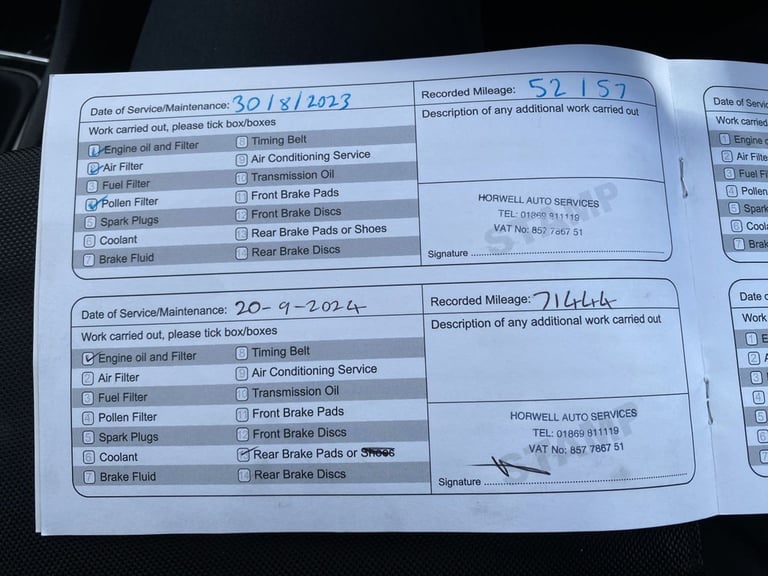 Date of Service/Maintenance: 30/8/2023
Recorded Mileage: 52157
Work carried out, please tick box/boxes
Description of any additional work carried out
1 Engine oil and Filter
8 Timing Belt
2 Air Filter
9 Air Conditioning Service
3 Fuel Filter
10 Transmission Oil
4 Pollen Filter
11 Front Brake Pads
5 Spark Plugs
12 Front Brake Discs
6 Coolant
13 Rear Brake Pads or Shoes
7 Brake Fluid
14 Rear Brake Discs
STAMP
HORWELL AUTO SERVICES
TEL: 01869 811119
VAT No: 857 7867 51
Signature
Date of Service/Maintenance: 20-9-2024
Recorded Mileage: 71444
Work carried out, please tick box/boxes
Description of any additional work carried out
Engine oil and Filter
8 Timing Belt
2 Air Filter
9 Air Conditioning Service
3 Fuel Filter
10 Transmission Oil
4 Pollen Filter
11 Front Brake Pads
5 Spark Plugs
12 Front Brake Discs
6 Coolant
Rear Brake Pads or Shoes
7 Brake Fluid
14 Rear Brake Discs
STAMP
HORWELL AUTO SERVICES
TEL: 01869 811119
VAT No: 857 7867 51
Signature
Date of Servic
Work carried
1 Engine o
2 Air Filte
3 Fuel Fi
4 Pollen
5 Spark
6 Coola
7 Brak
Date o
Work
1 E
2 A
3
4
5
6
7